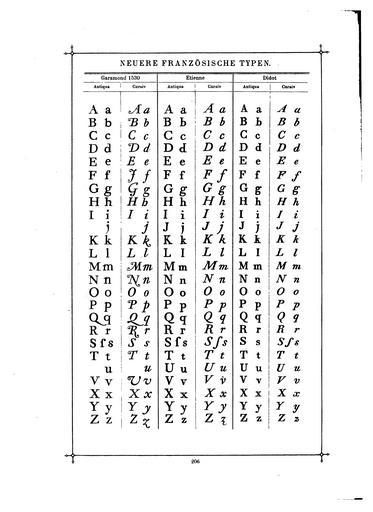 NEUERE FRANZÖSISCHE TYPEN.
Garamond 1530 Etienne Didot
Antiqua Cursiv Antiqua Cursiv Antiqua Cursiv
A a A a A a A a A a A a
B b B b B b B b B b B b
C c C c C c C c C c C c
D d D d D d D d D d D d
E e E e E e E e E e E e
F f F f F f F f F f F f
G g G g G g G g G g G g
H h H h H h H h H h H h
I i I i I i I i I i I i
j j J j J j J j J j
K k K k K k K k K k K k
L l L l L l L l L l L l
M m M m M m M m M m M m
N n N n N n N n N n N n
O o O o O o O o O o O o
P p P p P p P p P p P p
Q q Q q Q q Q q Q q Q q
R r R r R r R r R r R r
S ſ s S s S ſ s S ſ s S s S ſ s
T t T t T t T t T t T t
u u U u U u U u U u
V v V v V v V v V v V v
X x X x X x X x X x X x
Y y Y y Y y Y y Y y Y y
Z z Z z Z z Z z Z z Z z
206